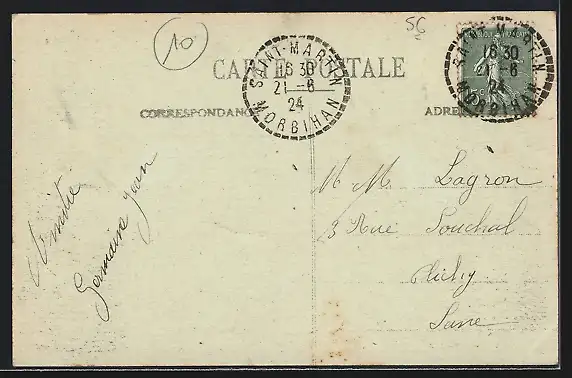 10
56
CARTE POSTALE
SAINT-MARTIN
16 30
21 -6
24
MORBIHAN
SAINT-MARTIN
16 30
21 -6
24
MORBIHAN
CORRESPONDANCE
ADRESSE
M. M. Lagron
3 Rue Pouchal
Clichy
Seine
Amitié
Germaine Jean